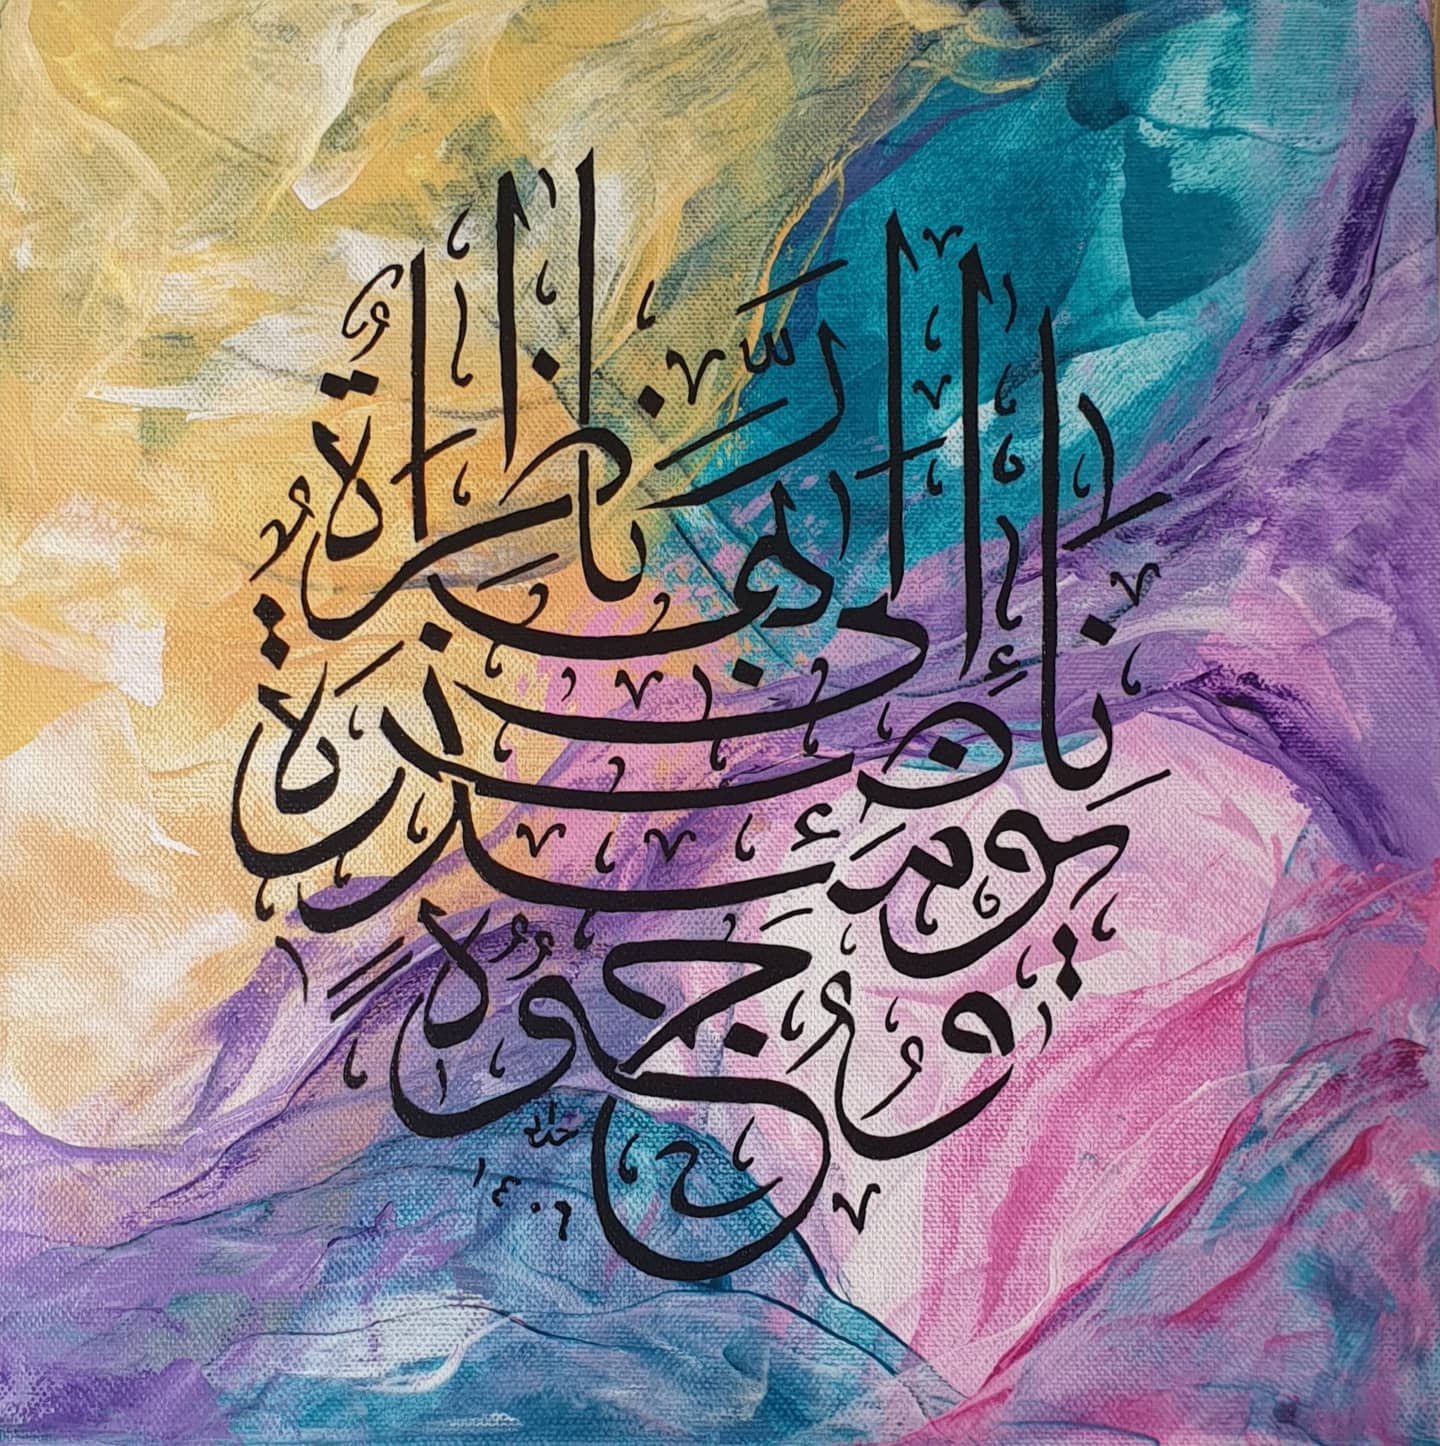 وُجُوهٌ يَوْمَئِذٍ نَاضِرَةٌ
إِلَىٰ رَبِّهَا نَاظِرَةٌ